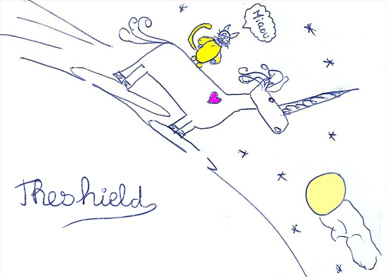 Miaou
Theshield